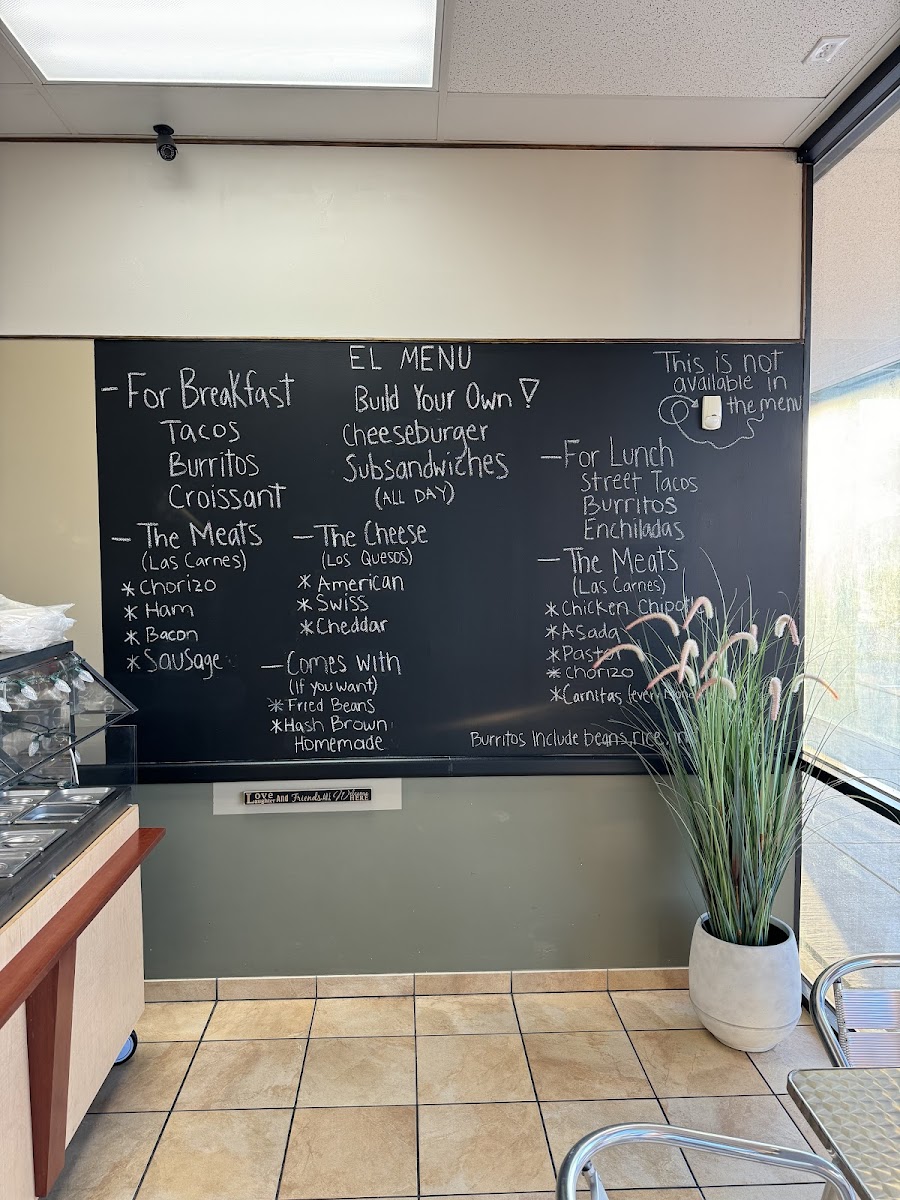 EL MENU
Build Your Own!
Cheeseburger
Subsandwiches
(ALL DAY)
- For Breakfast
Tacos
Burritos
Croissant
- The Meats
(Las Carnes)
* Chorizo
* Ham
* Bacon
* Sausage
- The Cheese
(Los Quesos)
* American
* Swiss
* Cheddar
- Comes with
(If you want)
* Fried Beans
* Hash Brown
Homemade
This is not
available in
the menu
- For Lunch
Street Tacos
Burritos
Enchiladas
- The Meats
(Las Carnes)
* Chicken Chipotle
* Asada
* Pastor
* Chorizo
* Carnitas
Burritos Include beans, rice,
Love Laughter And Friends Welcome HERE